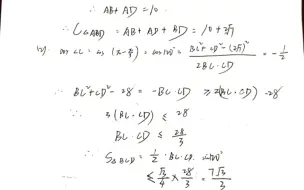 ∴ AB+AD=10
∴ C△ABD = AB+AD+BD = 10+2√7
(2). cos∠C = cos(π-π/3) = cos120° = (BC²+CD²-(2√7)²)/(2BC·CD) = -1/2
∴ BC²+CD²-28 = -BC·CD ≥ 2BC·CD-28
∴ 3(BC·CD) ≤ 28
BC·CD ≤ 28/3
∴ S△BCD = 1/2·BC·CD·sin120°
≤ √3/4 × 28/3 = 7√3/3